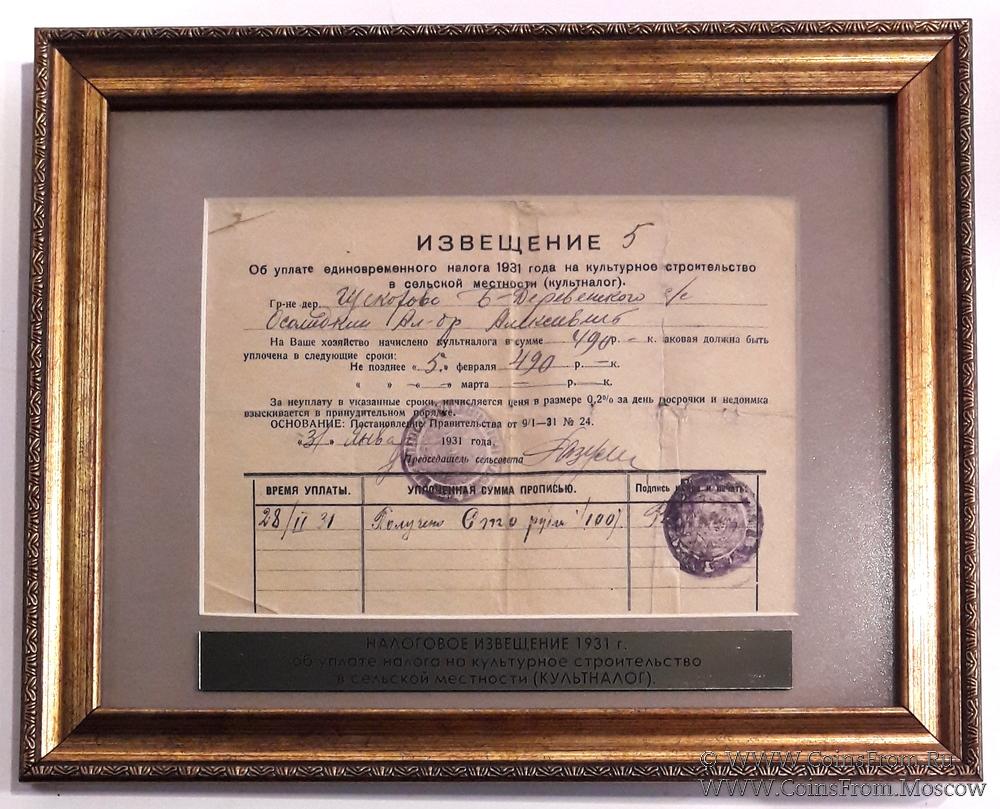 ИЗВЕЩЕНИЕ 5
Об уплате единовременного налога 1931 года на культурное строительство
в сельской местности (культналог).
Гр-не дер. Щекотово б-Деревенского с/с
Ал-др
На Ваше хозяйство начислено культналога в сумме 490 р. – к. аковая должна быть
уплочена в следующие сроки:
Не позднее «5» февраля 490 р. — к.
« » — « — » марта — р. — к.
За неуплату в указанные сроки, начисляется пеня в размере 0,2% за день просрочки и недоимка
взыскивается в принудительном порядке.
ОСНОВАНИЕ: Постановление Правительства от 9/1—31 № 24.
«31» Янва 1931 года.
Председатель сельсовета
ВРЕМЯ УПЛАТЫ. УПЛОЧЕННАЯ СУММА ПРОПИСЬЮ. Подпись и печать.
28/II 31 Получено Сто руб /100/.
НАЛОГОВОЕ ИЗВЕЩЕНИЕ 1931 г.
об уплате налога на культурное строительство
в сельской местности (КУЛЬТНАЛОГ).
© WWW.CoinsFrom.Ru
WWW.CoinsFrom.Moscow